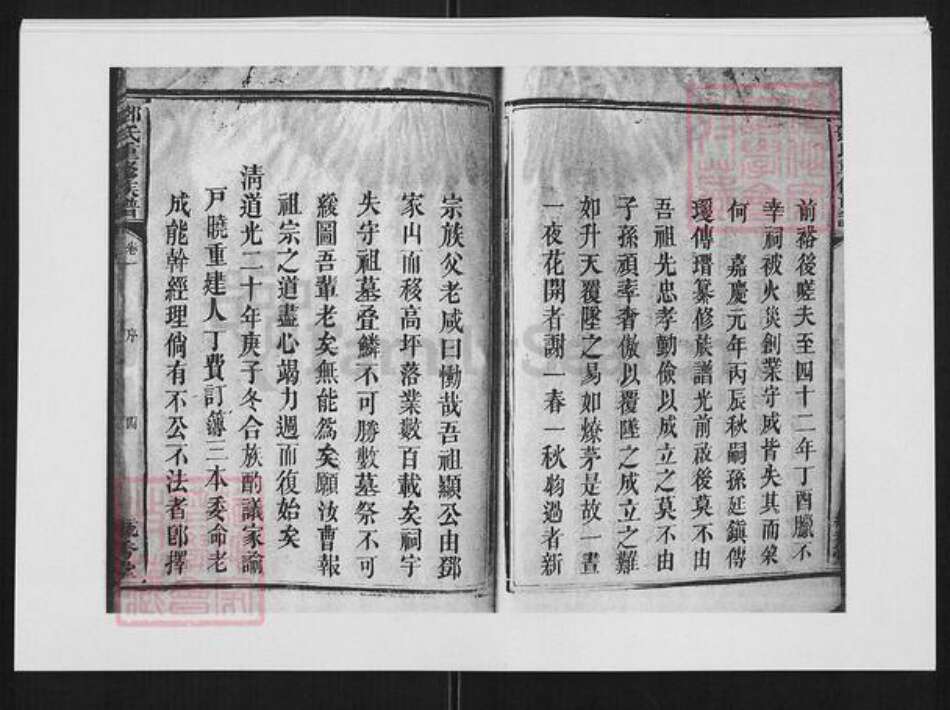 前裕後嗟夫至四十二年丁酉臘不
幸祠被火災創業守成皆失其而梁
何 嘉慶元年丙辰秋嗣孫廷鎮傳
瓊傳瑨纂修族譜光前啟後莫不由
吾祖先忠孝勤儉以成立之莫不由
子孫頑率奢傲以覆墜之成立之難
如升天覆墜之易如燎茅是故一晝
一夜花開者謝一春一秋物過者新
宗族父老咸曰慟哉吾祖顯公由鄧
家山而移高坪落業數百載矣祠宇
失守祖墓叠鱗不可勝數墓祭不可
緩圖吾輩老矣無能為矣願汝曹報
祖宗之道盡心竭力週而復始矣
清道光二十年庚子冬合族酌議家諭
戸曉重建人丁費訂簿三本委命老
成能幹經理倘有不公不法者卽擇
鄧氏重修族譜
卷一
序
四